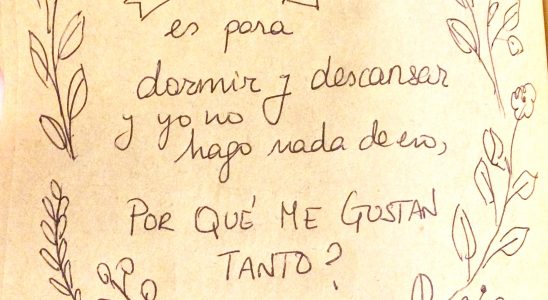 es para
dormir y descansar
y yo no
hago nada de eso,
POR QUÉ ME GUSTAN
TANTO?